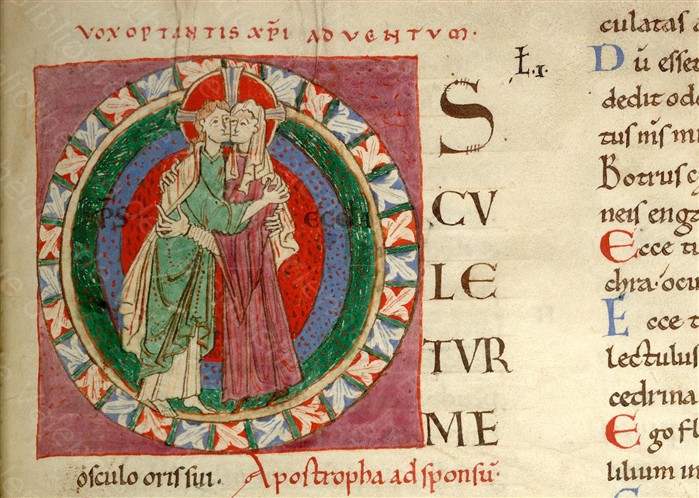 VOX OPTANTIS XPI ADVENTUM.
Ł.I.
S
CV
LE
TVR
ME
osculo oris sui. Apostropha ad sponsū
culatas
Dū esse
dedit odo
tus nīs
Botrus
neis eng
Ecce tu
chra. ocu
Ecce t
lectulus
cedrina
Ego fl
lilium in